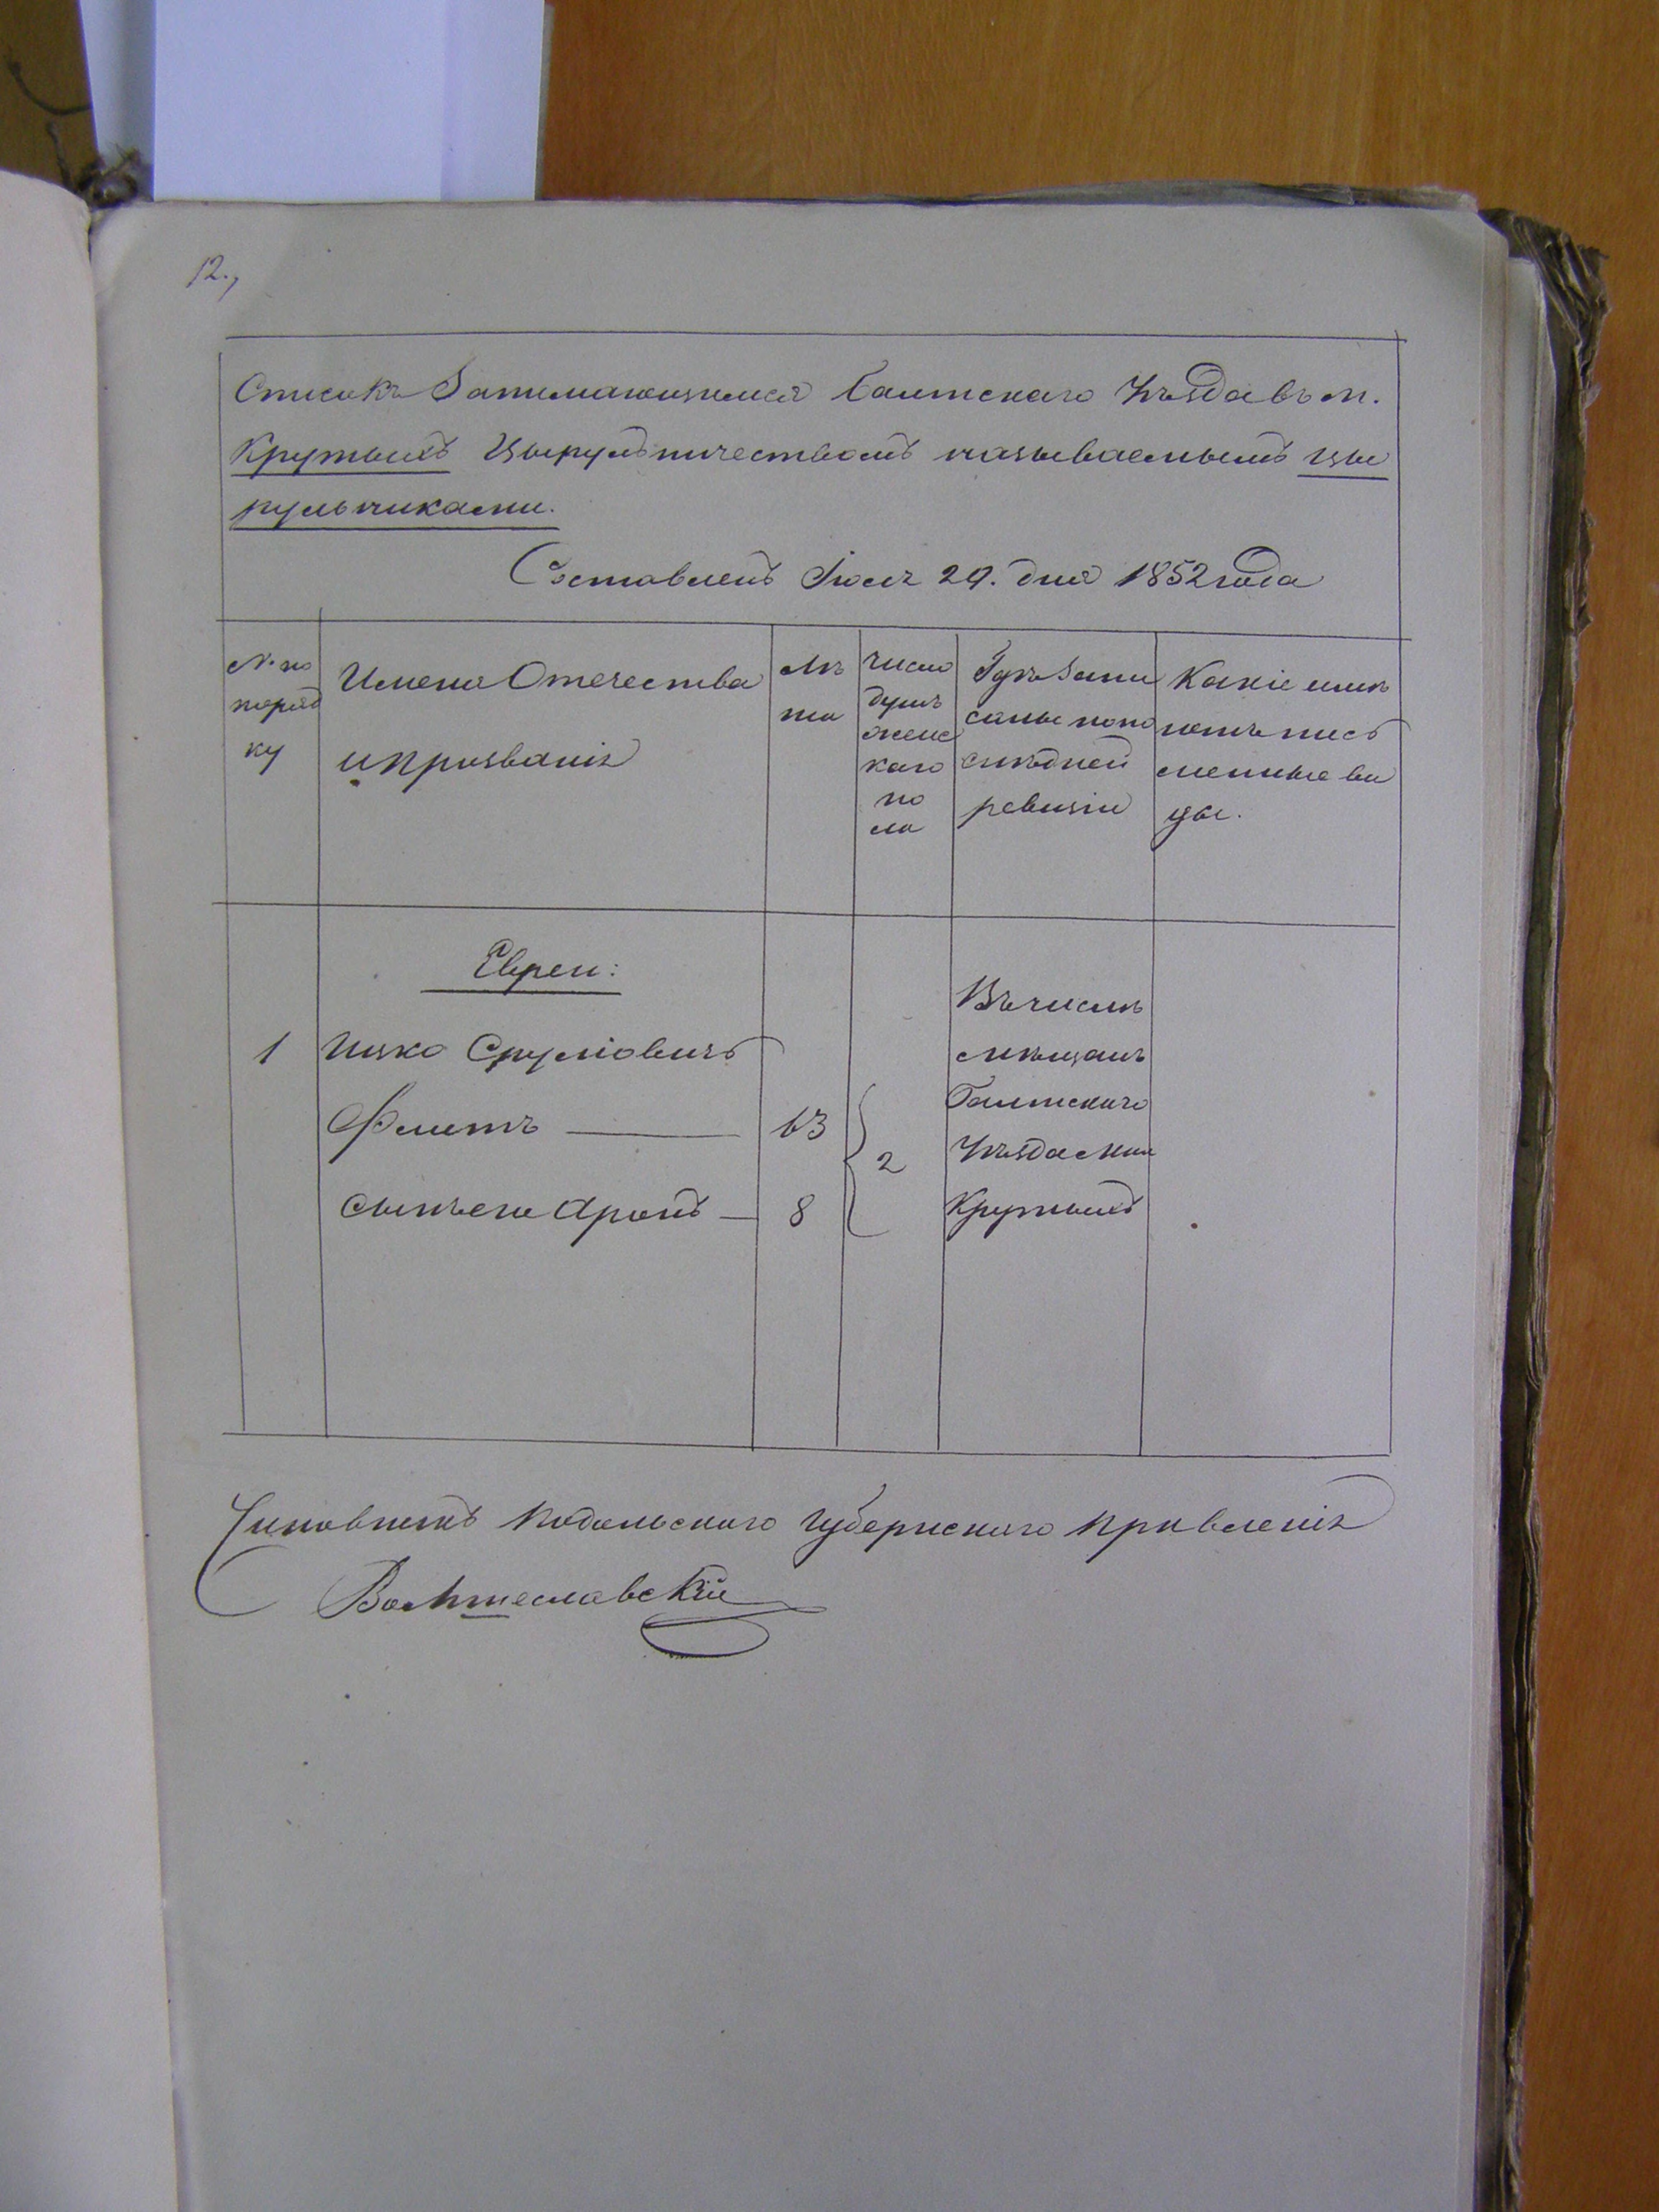 12.,
Списокъ Занимающимся Балтскаго Уѣзда въ м.
Крутыхъ Цырульничествомъ называемымъ цы
рульчиками.
Составленъ Іюля 29. дня 1852 года
№ по
поряд
ку
Имена Отечества
и прозванія
Лѣ
та
Число
душъ
женс
каго
по
ла
Гдѣ запи
саны по по
слѣдней
ревизіи
Какіе имѣ
ютъ пись
менные ви
ды.
Евреи:
1
Ицко Сруліовичъ
63
Сынъ его Аронъ
8
2
Въ числѣ
мѣщанъ
Балтскаго
Уѣзда м
Крутыхъ
Чиновникъ Подольскаго Губернскаго Правленія